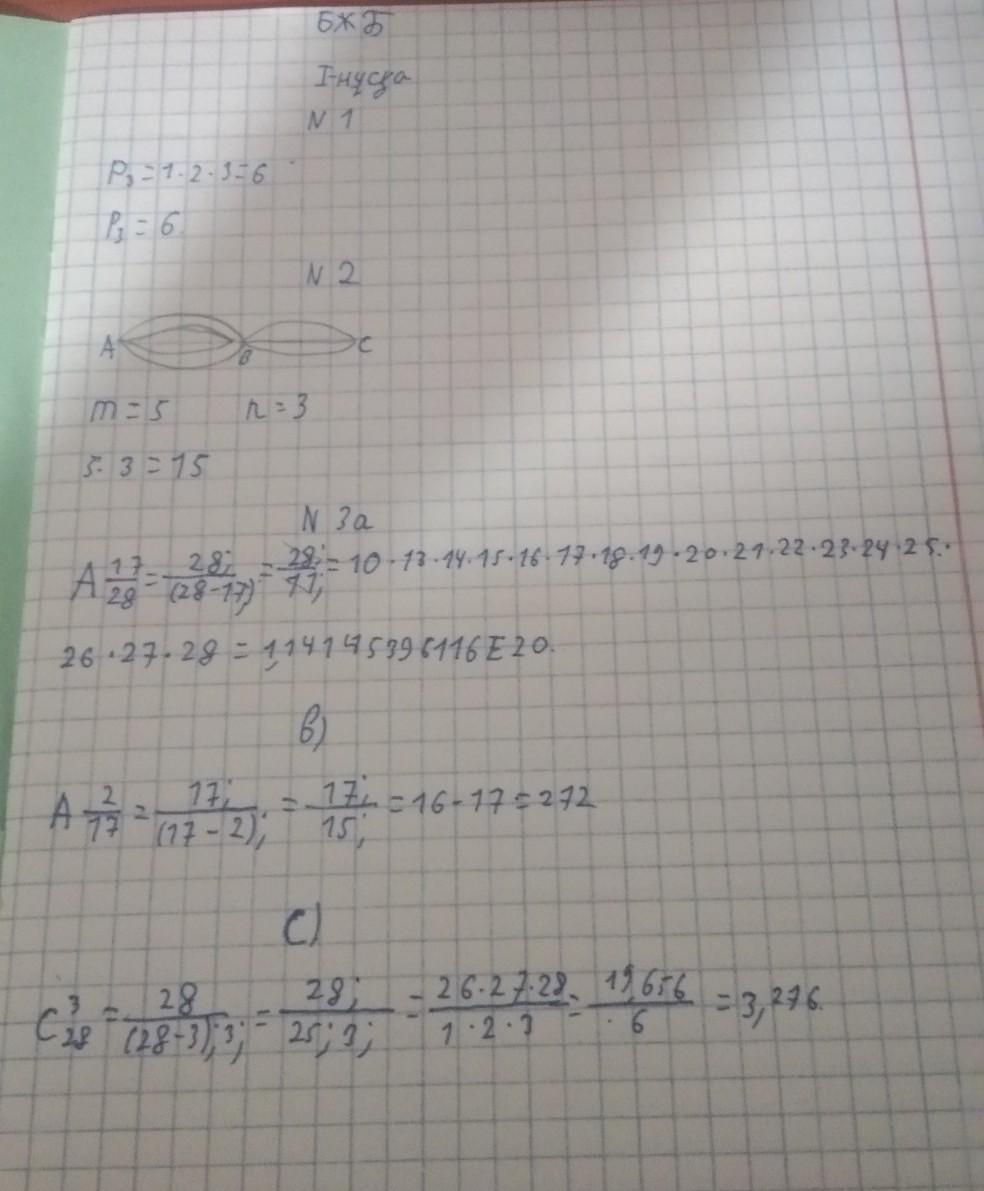 БЖБ
I-нусқа
N 1
P₃ = 1·2·3=6
P₃ = 6
N 2
A B C
m = 5 n = 3
5·3 = 15
N 3a
A 17/28 = 28;/(28-17) = 28;/11; = 10·13·14·15·16·17·18·19·20·21·22·23·24·25·
26·27·28 = 1,141745396116E20.
b)
A 2/17 = 17;/(17-2); = 17;/15; = 16-17 = 272
C)
C³₂₈ = 28/(28-3);3; = 28;/25;3; = 26·27·28/1·2·3 = 19,656/6 = 3,276.